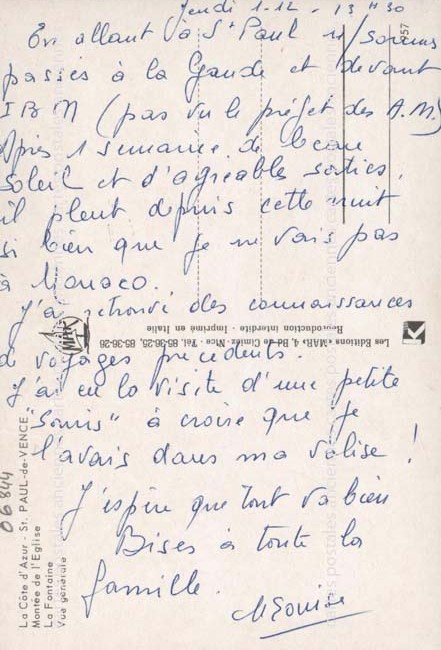 Jeudi 1-12 - 13 H 30
En allant à St Paul n/ sommes
passés à la Gaude et devant
IBM (pas vu le préfet des A.M.)
Après 1 semaine de beau
soleil et d'agréables sorties,
il pleut depuis cette nuit
si bien que je ne vais pas
à Monaco.
J'ai retrouvé des connaissances
de voyages précédents.
J'ai eu la visite d'une petite
"Souris" à croire que je
l'avais dans ma valise !
J'espère que tout va bien
Bises à toute la
famille.
MLouise
Les Editions «MAR» 4, Bd de Cimiez - Nice - Tél. 85-36-25, 85-36-26
Reproduction interdite - Imprimé en Italie
MAR
K
957
06844
La Côte d'Azur - St. PAUL-de-VENCE
Montée de l'Eglise
La Fontaine
Vue générale